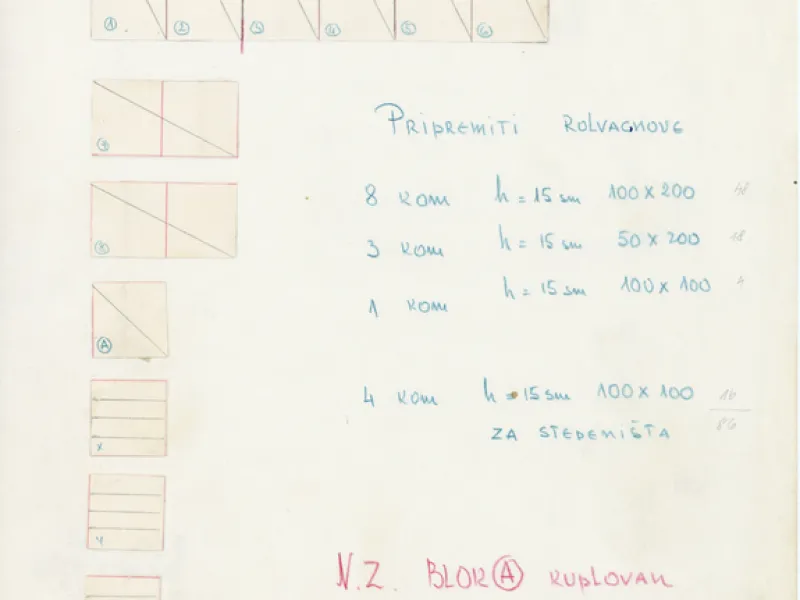 1 2 3 4 5 6
PRIPREMITI ROLVAGNOVE
8 KOM h = 15 sm 100 x 200 48
3 KOM h = 15 sm 50 x 200 18
1 KOM h = 15 sm 100 x 100 4
A
4 KOM h = 15 sm 100 x 100 16
ZA STEPENIŠTA 86
X
Y
N.Z. BLOK A KUPLOVAN